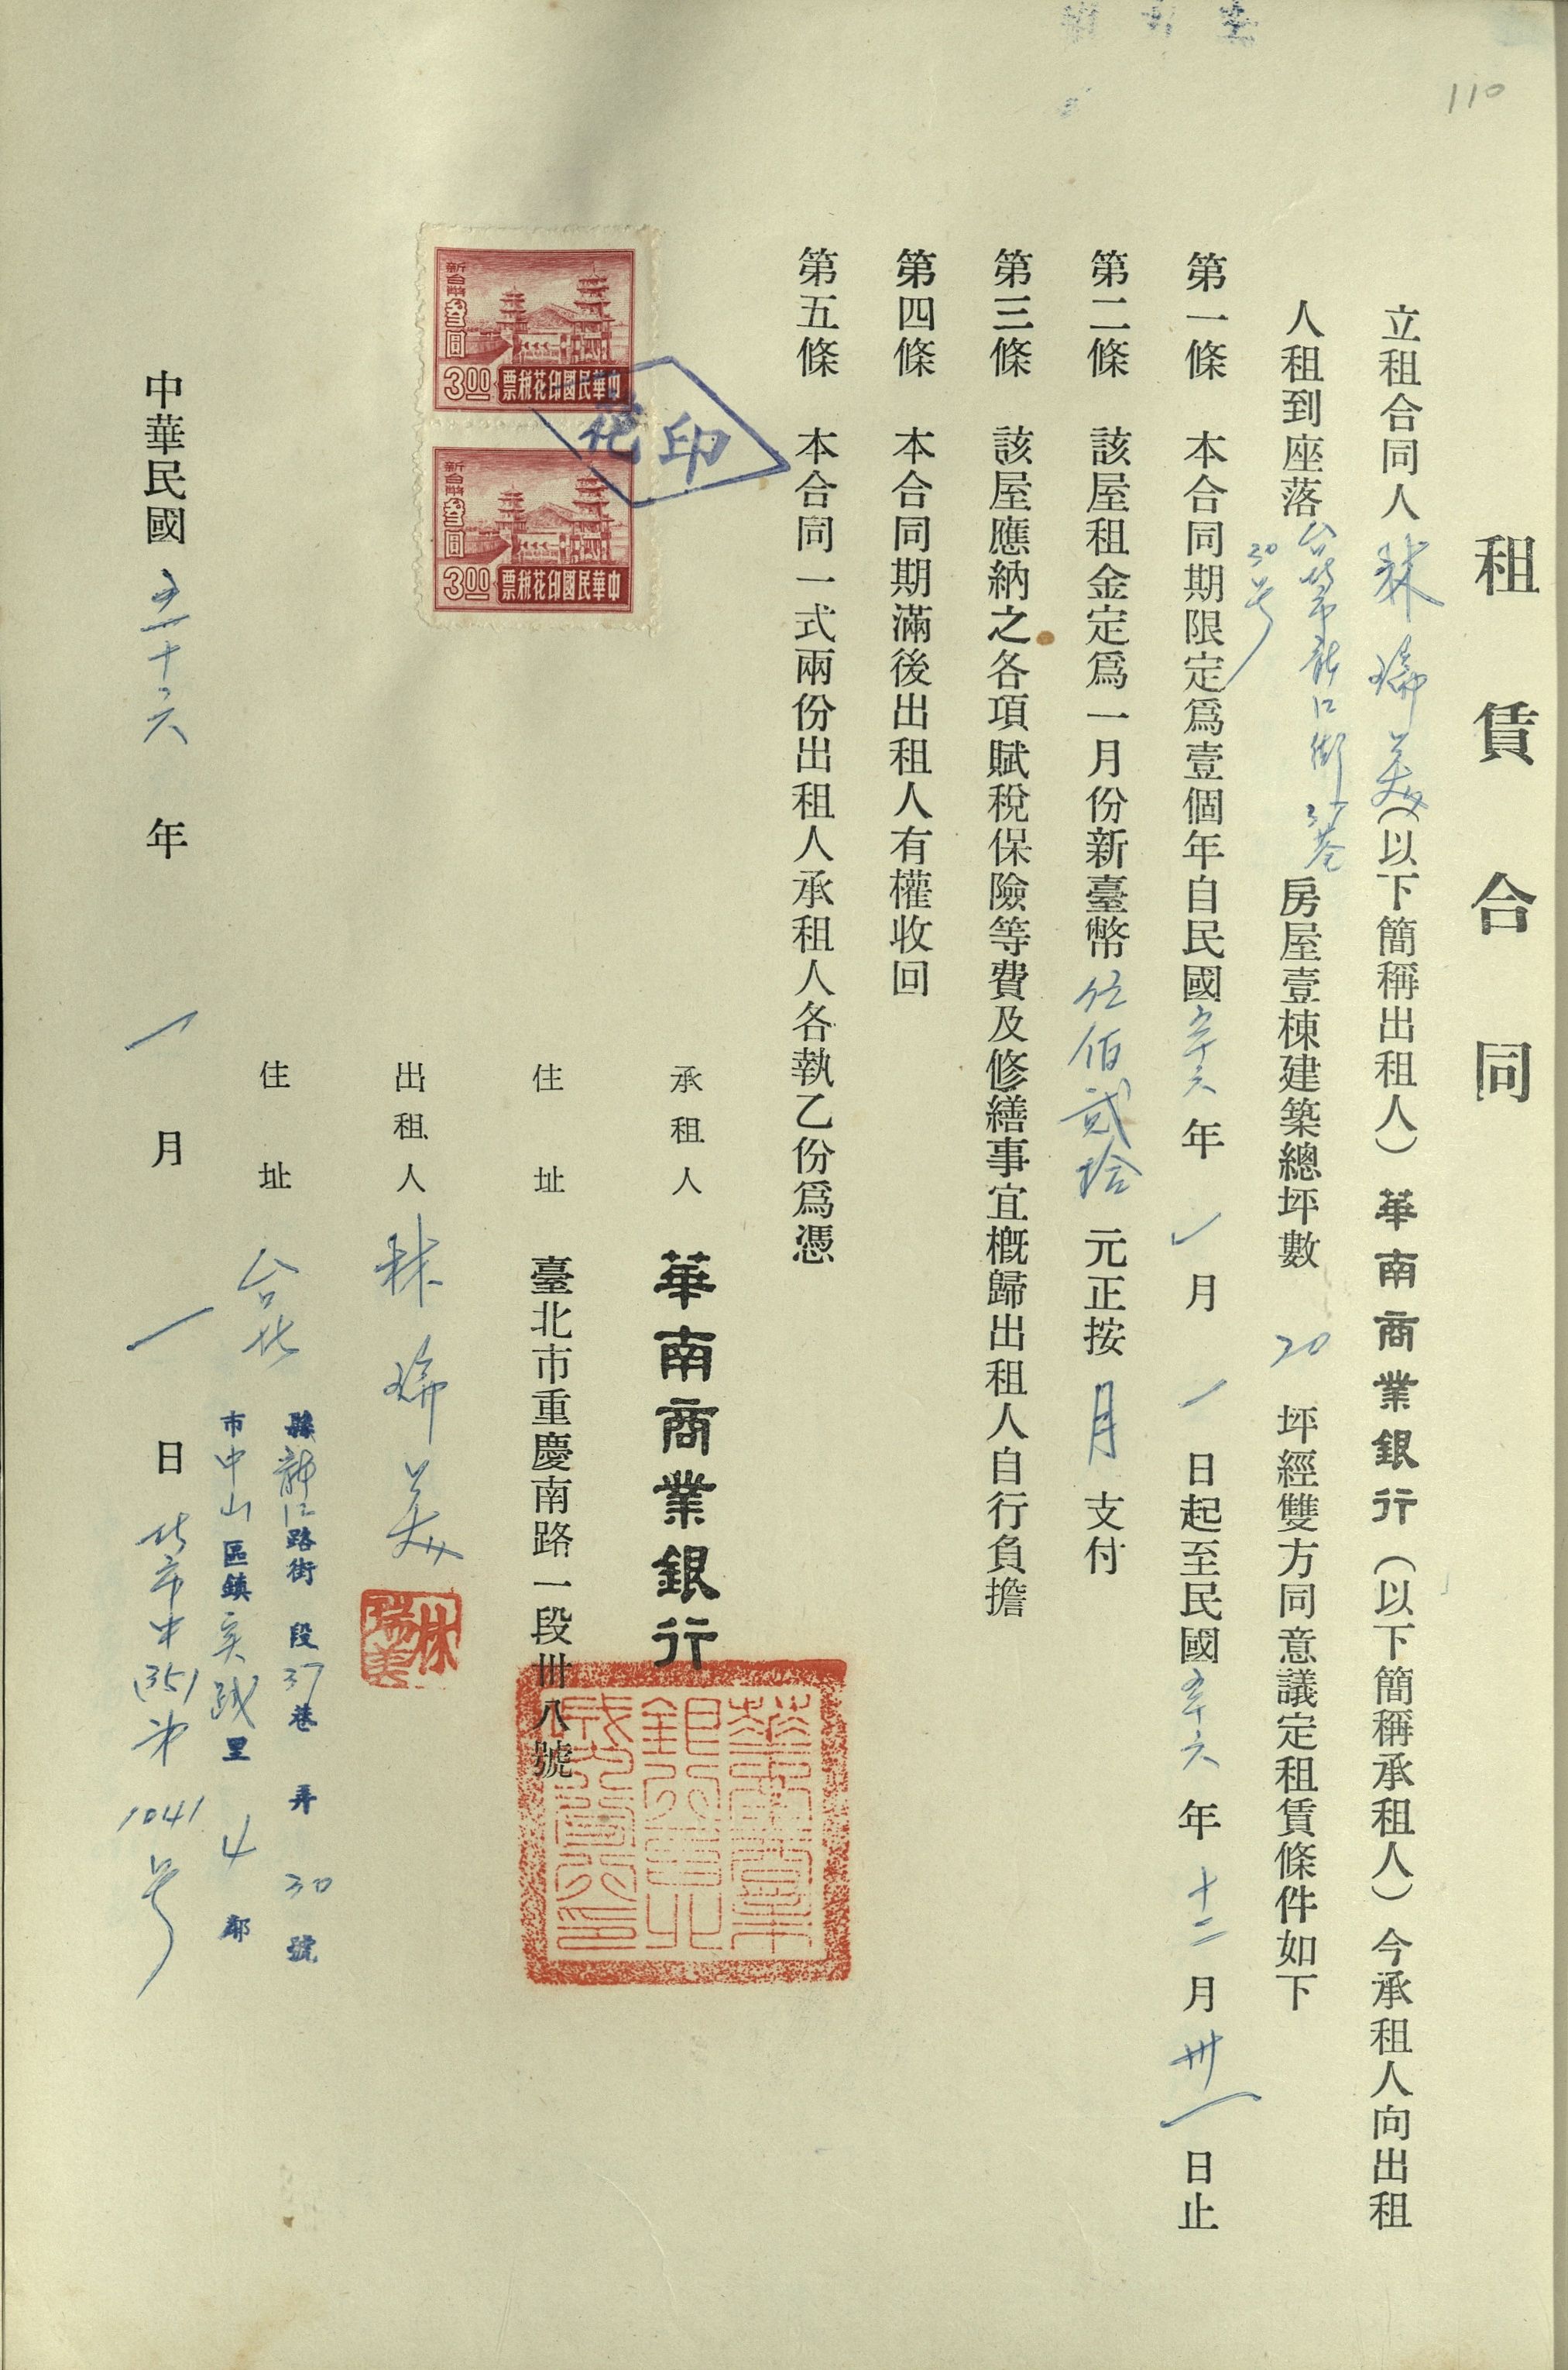 110
租賃合同
立租合同人林瑞美（以下簡稱出租人）華南商業銀行（以下簡稱承租人）今承租人向出租
人租到座落台北市龍江街37巷
30号
房屋壹棟建築總坪數 20 坪經雙方同意議定租賃條件如下
第一條 本合同期限定爲壹個年自民國五十六年一月一日起至民國五十六年十二月卅一日止
第二條 該屋租金定爲一月份新臺幣伍佰貳拾元正按月支付
第三條 該屋應納之各項賦稅保險等費及修繕事宜概歸出租人自行負擔
第四條 本合同期滿後出租人有權收回
第五條 本合同一式兩份出租人承租人各執乙份爲憑
新台幣叁圓
3.00 中華民國印花稅票
新台幣叁圓
3.00 中華民國印花稅票
印花
承租人 華南商業銀行
住址 臺北市重慶南路一段卅八號
出租人 林瑞美
林瑞美
住址 台北
縣龍江路街 段37巷 弄 30 號
市中山區鎮實踐里 4 鄰
中華民國五十六年一月一日
北市中(35)字第1041号